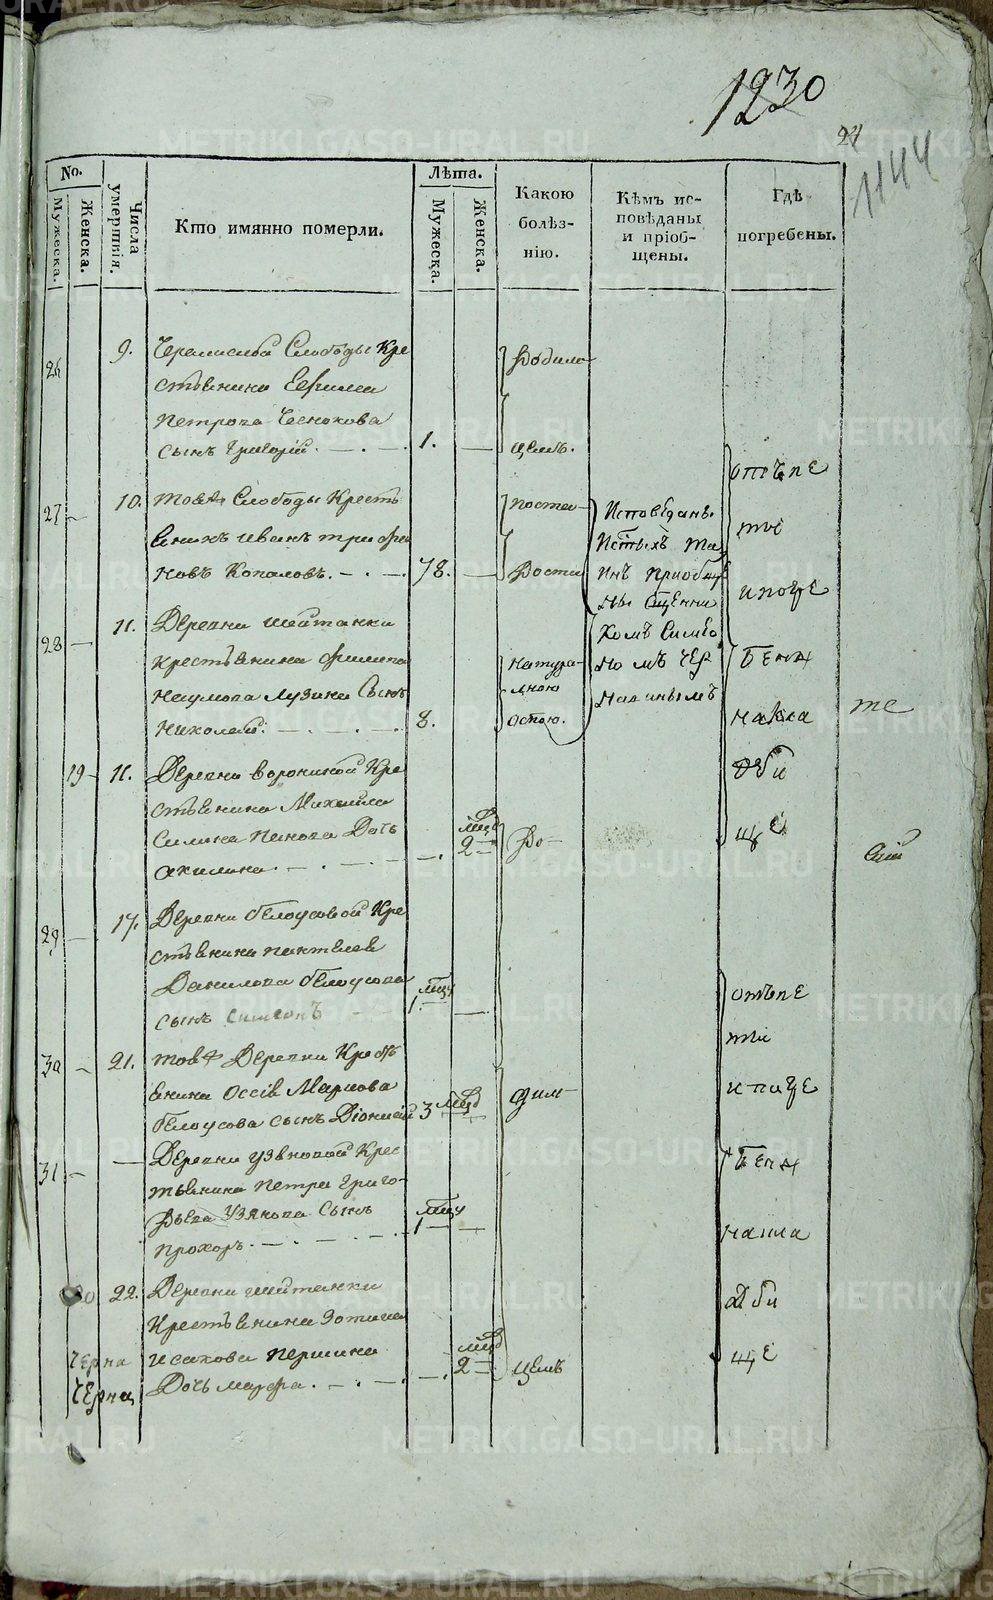 1230
24
1144
No.
Мужеска.
Женска.
Числа умершихъ.
Кто имянно померли.
Лѣта.
Мужеска.
Женска.
Какою болѣз-
нію.
Кѣмъ ис-
повѣданы
и пріоб-
щены.
Гдѣ
погребены.
26
9.
Слободы Кре
стьянина Ефима
Петрова Чеснокова
сынъ Григорій
1.
Родим
цемъ.
27
10.
Той Слободы Кресть
янинъ Иванъ Трифо
новъ Копаловъ.
78.
старости
Исповѣданъ
Истыхъ Та
инъ приобщ
Священни
комъ Симео
номъ Чер
отпѣ
ты
и погре
бены
на кла
дби
ще
28
11.
Деревни Шайтанки
крестьянина Филипа
Наумова Лузина сынъ
Николай.
8.
натура
лною
оспою.
те
19
11.
Деревни Ворониной Кре
стьянина Михайла
Силина Панова Дочь
Акилина.
2
Ро
29
17.
Деревни Бѣлоусовой Кре
стьянина Пантелея
Данилова Бѣлоусова
сынъ Симеонъ
1.
отпѣ
ты
и погре
бены
на кла
дби
ще
30
21.
Той Деревни Кресть
янина Маркова
Бѣлоусова сынъ Діонисій
3
дим
31
Деревни Узяновой Крес
тьянина Петра Григо-
рьева Узянова сынъ
Прохоръ.
1
22.
Деревни Шайтанки
Крестьянина Зотика
Исакова Першина
Дочь Марфа.
2
цемъ
METRIKI.GASO-URAL.RU